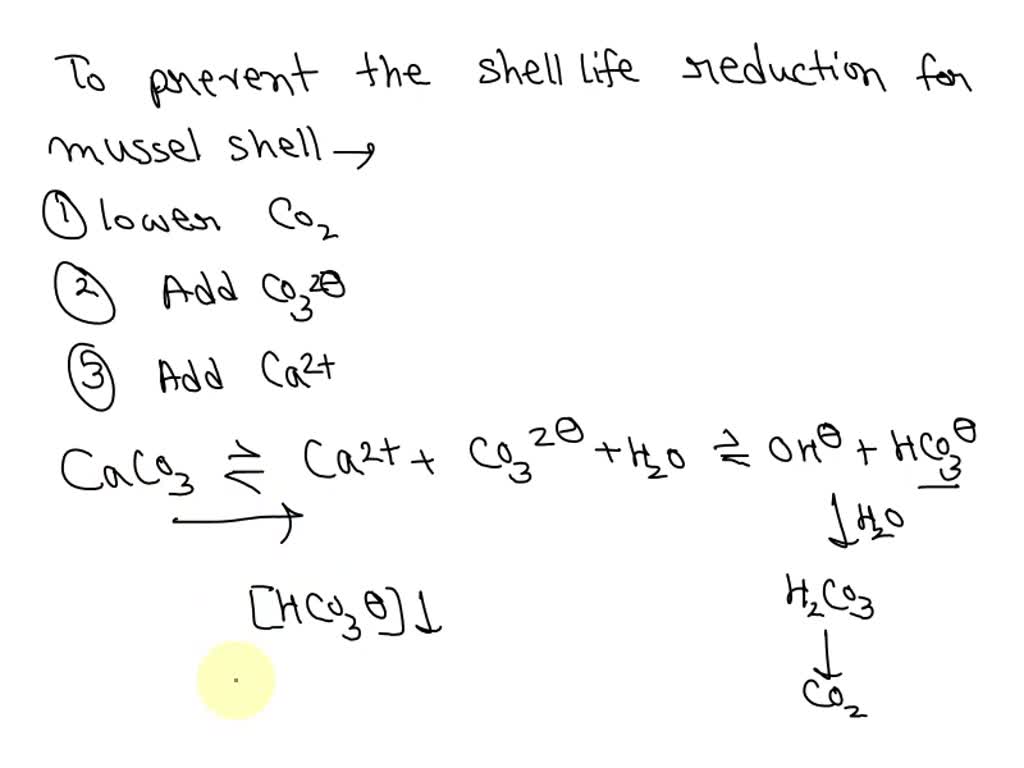 To prevent the shell life reduction for
mussel shell →
① lower CO₂
② Add CO₃²⊖
③ Add Ca²⁺
CaCO₃ ⇌ Ca²⁺ + CO₃²⊖ + H₂O ⇌ OH⊖ + HCO₃⊖
→
↓ H₂O
[HCO₃⊖] ↓
H₂CO₃
↓
CO₂